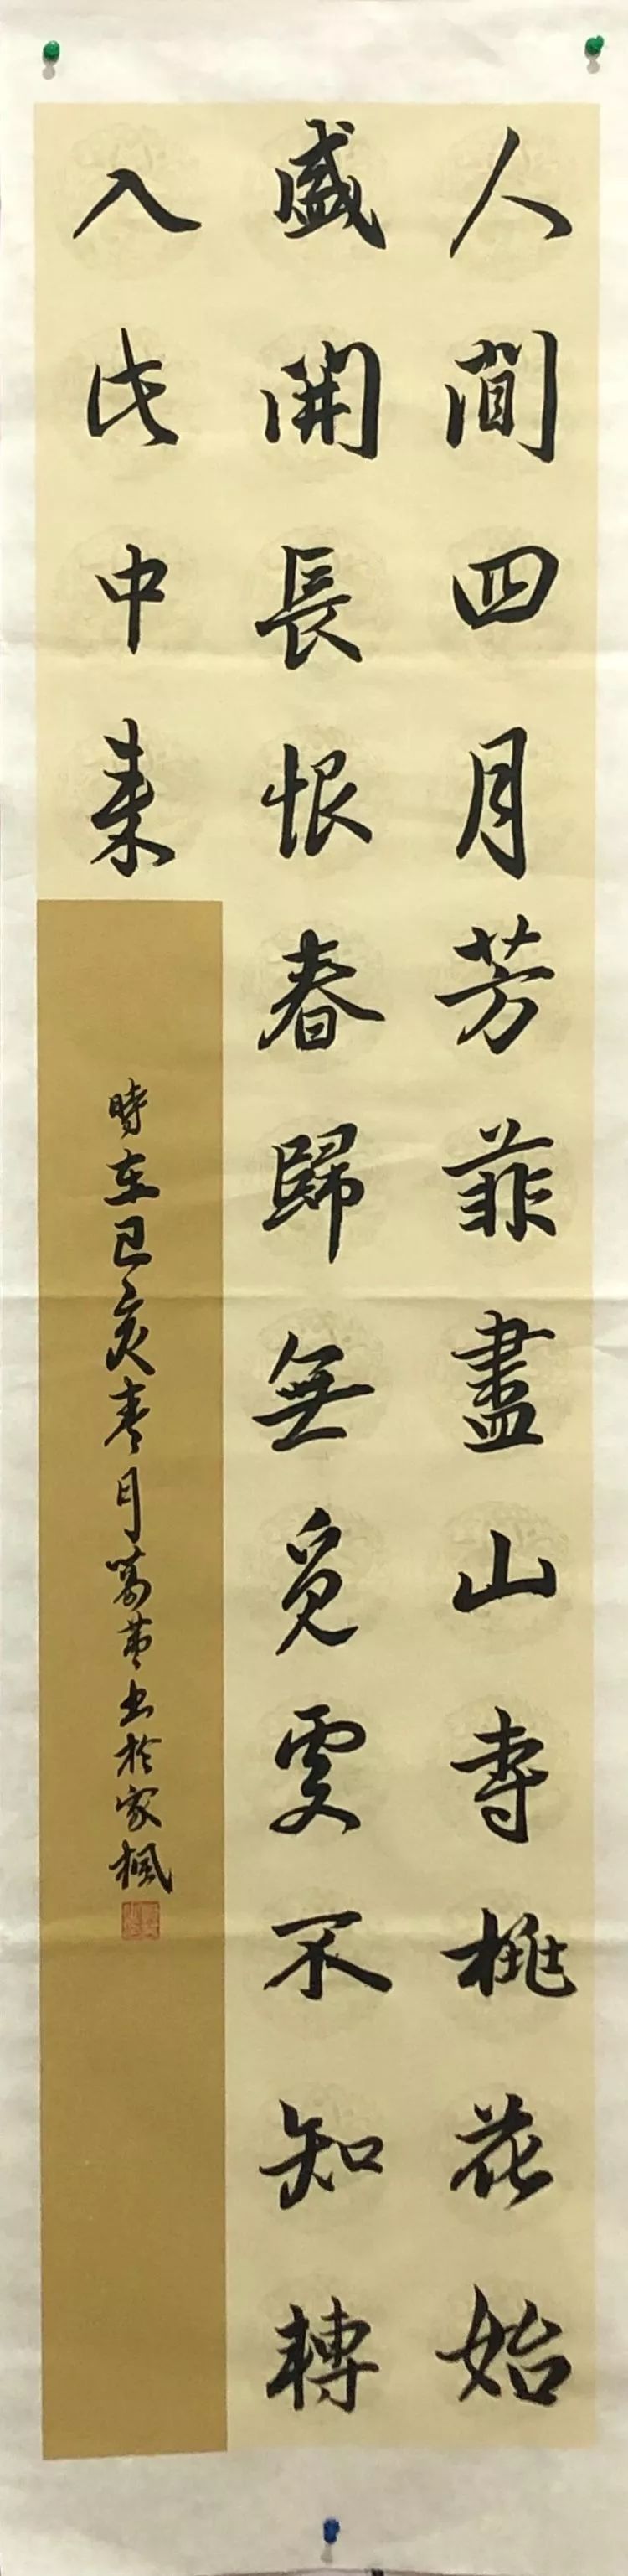 人間四月芳菲盡山寺桃花始
盛開長恨春歸無覓處不知轉
入此中來
時在己亥春月书於家楓